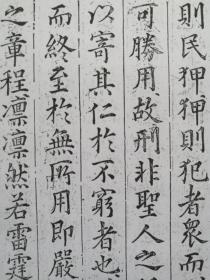 則民狎狎則犯者衆而
可勝用故刑非聖人之
以寄其仁於不窮者也
而終至於無所用即嚴
之章程凛凛然若雷霆